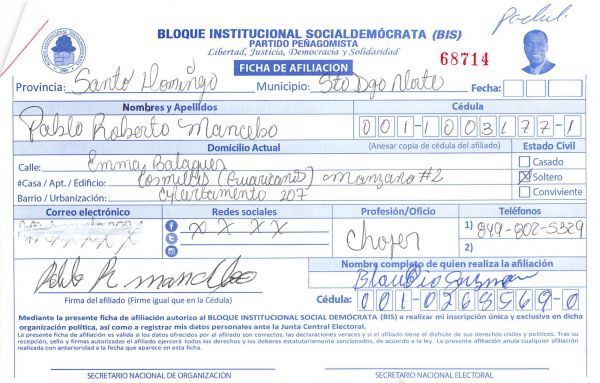 Pachul.
BLOQUE INSTITUCIONAL SOCIALDEMÓCRATA (BIS)
PARTIDO PEÑAGOMISTA
Libertad, Justicia, Democracia y Solidaridad
FICHA DE AFILIACION
68714
Provincia: Santo Domingo Municipio: Sto Dgo Norte Fecha:
Nombres y Apellidos Cédula
Pablo Roberto Mancebo 001-1003177-1
Domicilio Actual (Anexar copia de cédula del afiliado) Estado Civil
Calle: Emma Balaguer Casado
#Casa / Apt. / Edificio: (Guaricano) Manzano #2 Soltero
Barrio / Urbanización: Apartamento 207 Conviviente
Correo electrónico Redes sociales Profesión/Oficio Teléfonos
x x x x x x x x Chofer 1) 849-802-5329
2)
Pablo R mancebo Nombre completo de quien realiza la afiliación
Blaudio Guzman
Firma del afiliado (Firme igual que en la Cédula) Cédula: 001-0268569-0
Mediante la presente ficha de afiliación autorizo al BLOQUE INSTITUCIONAL SOCIAL DEMÓCRATA (BIS) a realizar mi inscripción única y exclusiva en dicha
organización política, así como a registrar mis datos personales ante la Junta Central Electoral.
La presente ficha de afiliación es válida si los datos ofrecidos por el afiliado son correctos, las declaraciones veraces y si el titular tiene el disfrute de sus derechos civiles y políticos. Tras su
recepción, sello y firmas autorizadas el afiliado ejercerá todos los derechos y los deberes estatutariamente sancionados, de acuerdo a la ley. La presente afiliación anula cualquier afiliación
realizada con anterioridad a la fecha que aparece en esta ficha.
SECRETARIO NACIONAL DE ORGANIZACIÓN SECRETARIO NACIONAL ELECTORAL